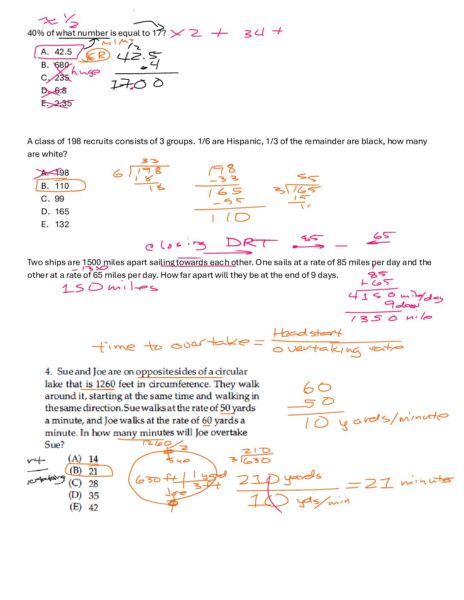 x 1/2
40% of what number is equal to 17? x 2 + 34 +
A. 42.5
B. 680
C. 235 huge
D. 6.8
E. 2.35
42.5
.4
17.00
A class of 198 recruits consists of 3 groups. 1/6 are Hispanic, 1/3 of the remainder are black, how many
are white?
A. 198
B. 110
C. 99
D. 165
E. 132
33
6 198
18
18
198
-33
165
-55
110
55
3 165
15
closing DRT 85 — 65
Two ships are 1500 miles apart sailing towards each other. One sails at a rate of 85 miles per day and the
other at a rate of 65 miles per day. How far apart will they be at the end of 9 days.
-1350
150 miles
85
+65
150 mile/day
9 days
1350 mile
time to overtake = Head start
overtaking rate
4. Sue and Joe are on opposite sides of a circular
lake that is 1260 feet in circumference. They walk
around it, starting at the same time and walking in
the same direction. Sue walks at the rate of 50 yards
a minute, and Joe walks at the rate of 60 yards a
minute. In how many minutes will Joe overtake
Sue?
(A) 14
(B) 21
(C) 28
(D) 35
(E) 42
60
50
10 yards/minute
1260/2
Sue
630 ft 1 yard
3 ft
Joe
210
3 630
210 yards
10 yds/min
= 21 minutes